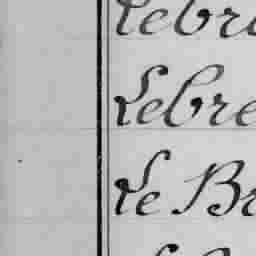 Lebr
Lebre
Le Br